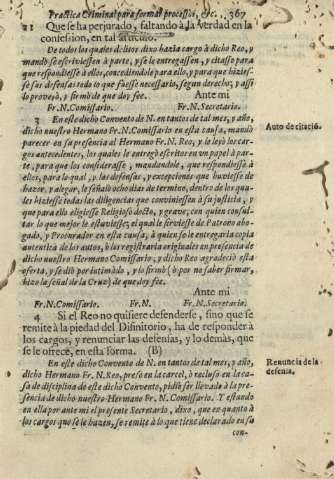 Practica Criminal para formar processos, &c. 367
21 Que se ha perjurado, faltando à la Verdad en la
confession, en tal articulo.
De todos los quales delitos dixo hazia cargo à dicho Reo, y
mandò se escriviessen à parte, y se le entregassen, y citasse para
que respondiesse à ellos, concediendole para ello, y para que hizies-
se sus defensas todo lo que fuesse necessario, segun derecho; y assi
lo proveyò, y firmò de que doy fee. Ante mi
Fr. N. Comissario. Fr. N. Secretario.
3 En este dicho Convento de N. en tantos de tal mes, y año,
dicho nuestro Hermano Fr. N. Comissario en esta causa, mandò
parecer en su presencia al Hermano Fr. N. Reo, y le leyò los car-
gos antecedentes, los quales le entregò escritos en un papel à par-
te, para que los considerasse, mandandole, que respondiesse à
ellos, para lo qual, y las defensas, y excepciones que huviesse de
hazer, y alegar, le señalò ocho dias de termino, dentro de los qua-
les hiziesse todas las diligencias que conviniessen à su justicia, y
que para ello eligiesse Religioso docto, y grave, con quien consul-
tar lo que mejor le estuviesse; el qual le sirviesse de Patrono abo-
gado, y Procurador en esta causa, à quien se le entregaria copia
autentica de los autos, ò los registraria originales en presencia de
dicho nuestro Hermano Comissario, y dicho Reo agradeciò esta
oferta, y se diò por intimado, y lo firmò (ò por no saber firmar,
hizo la señal de la Cruz) de que doy fee.
Ante mi
Fr. N. Comissario. Fr. N. Fr. N. Secretario.
4 Si el Reo no quisiere defenderse, sino que se
remite à la piedad del Disinitorio, ha de responder à
los cargos, y renunciar las defensas, y lo demàs, que
se le ofrece, en esta forma. (B)
En este dicho Convento de N. en tantos de tal mes, y año,
dicho Hermano Fr. N. Reo, preso en la carcel, ò recluso en la ca-
sa de disciplina de este dicho Convento, pidiò ser llevado à la pre-
sencia de dicho nuestro Hermano Fr. N. Comissario. Y estando
en ella por ante mi el presente Secretario, dixo, que en quanto à
los cargos que se le hazen, se remite à lo que tiene declarado en su
con-
Auto de citació.
Renuncia de la
defensa.